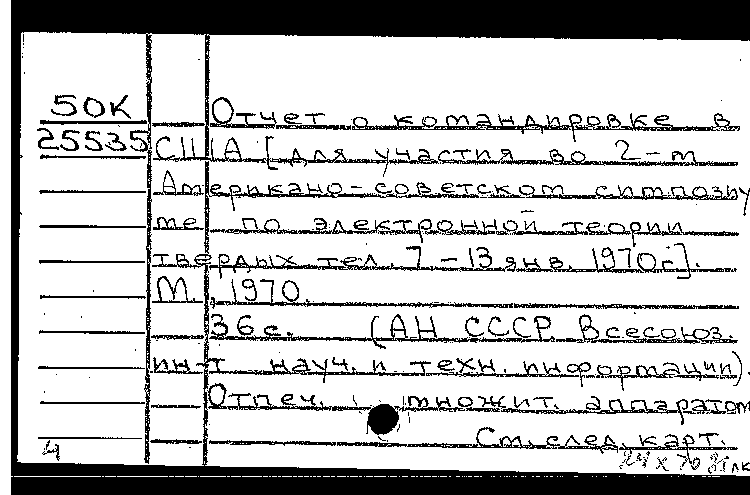 50К
25535
Отчет о командировке в
США [для участия во 2-м
Американо-советском симпозиу
ме по электронной теории
твердых тел. 7-13 янв. 1970г].
М., 1970.
36с. (АН СССР. Всесоюз.
ин-т науч. и техн. информации).
Отпеч. множит. аппаратом
См. след. карт.
4